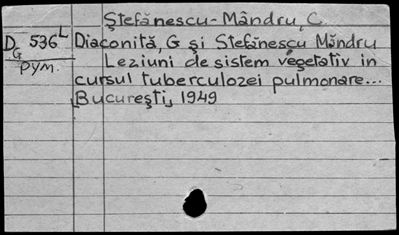 Ştefănescu-Mândru, C.
D 536 L Diaconită, G şi Stefănescu Măndru
G
PYM. Leziuni de sistem vegetativ in
cursul tuberculozei pulmonare...
Bucureşti, 1949